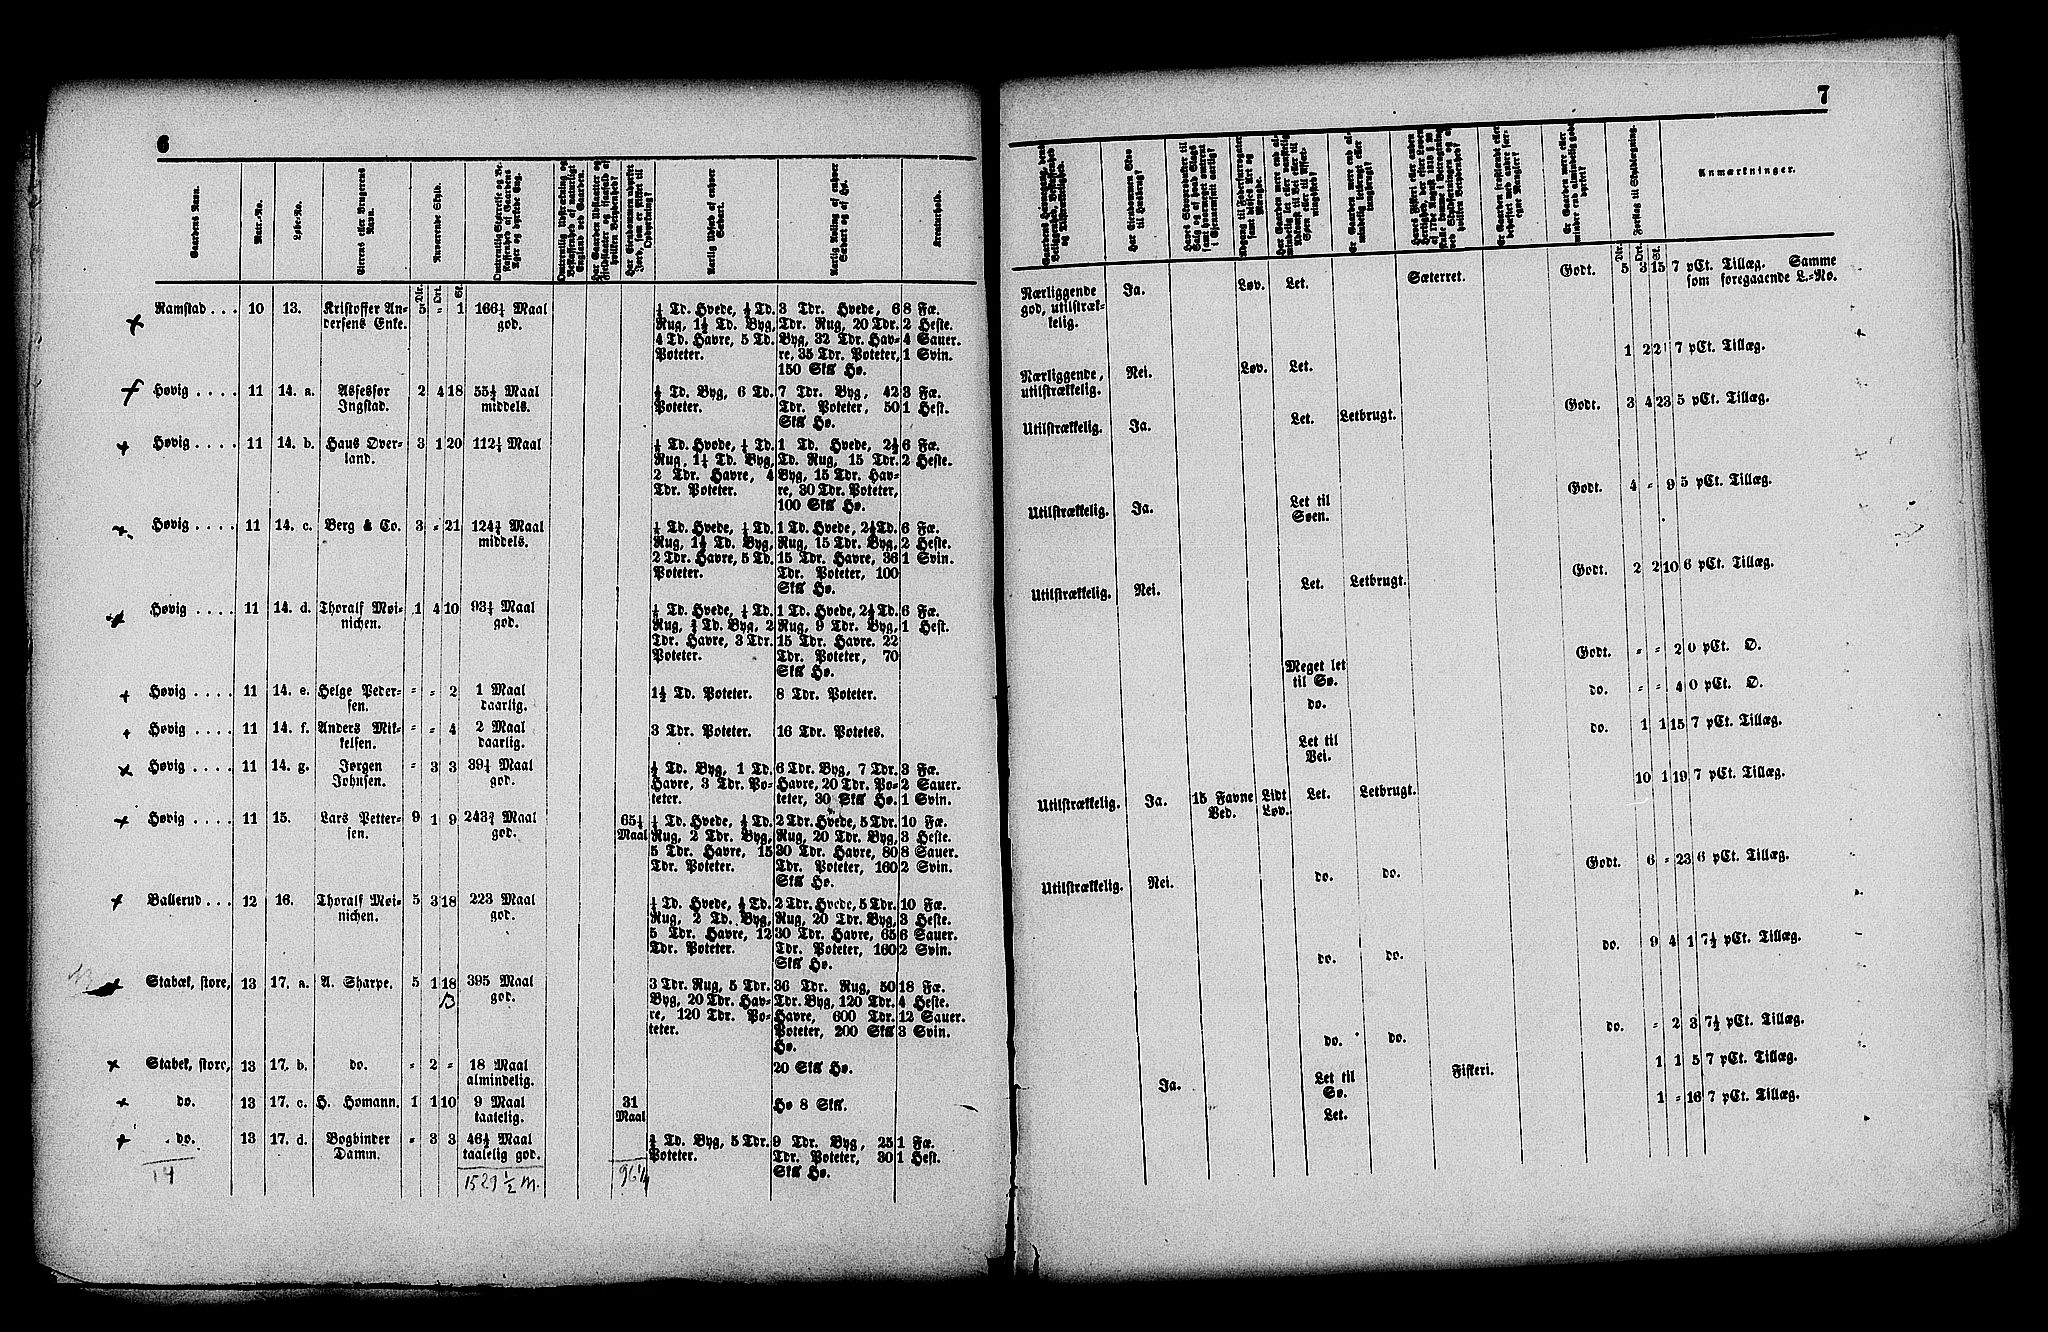 6
Gaardens Navn.
Matr.-No.
Løbe-No.
Eierens eller Brugerens Navn.
Nuværende Skyld.
Dlr. Ort. Sk.
Aarlig Udsæd af enhver Sædart.
Aarlig Avling af enhver Sædart og af Hø.
Kreaturhold.
Ramstad . . . 10 13. Kristoffer An- 5 = 1 166¼ Maal ¼ Td. Hvede, ¼ Td. 3 Tdr. Hvede, 6 8 Fæ.
dersens Enke. god. Rug, 1½ Td. Byg, Tdr. Rug, 20 Tdr. 2 Heste.
4 Td. Havre, 5 Td. Byg, 32 Tdr. Hav- 4 Sauer.
Poteter. re, 35 Tdr. Poteter, 1 Svin.
150 Sk℔ Hø.
Høvig . . . . 11 14. a. Assessor 2 4 18 55½ Maal ½ Td. Byg, 6 Td. 7 Tdr. Byg, 42 3 Fæ.
Ingstad. middels. Poteter. Tdr. Poteter, 50 1 Hest.
Sk℔ Hø.
Høvig . . . . 11 14. b. Haus Over- 3 1 20 112¼ Maal ¼ Td. Hvede, ¼ Td. 1 Td. Hvede, 2½ 6 Fæ.
land. Rug, 1¼ Td. Byg, Td. Rug, 15 Tdr. 2 Heste.
2 Tdr. Havre, 4 Byg, 15 Tdr. Hav-
Tdr. Poteter. re, 30 Tdr. Poteter,
100 Sk℔ Hø.
Høvig . . . . 11 14. c. Berg & Co. 3 = 21 124¾ Maal ¼ Td. Hvede, ¼ Td. 1 Td. Hvede, 2½ Td. 6 Fæ.
middels. Rug, 1½ Td. Byg, Rug, 15 Tdr. Byg, 2 Heste.
2 Tdr. Havre, 5 Td. 15 Tdr. Havre, 36 1 Svin.
Poteter. Tdr. Poteter, 100
Sk℔ Hø.
Høvig . . . . 11 14. d. Thoralf Møi- 1 4 10 93¼ Maal ¼ Td. Hvede, ¼ Td. 1 Td. Hvede, 2½ Td. 6 Fæ.
nichen. god. Rug, ¾ Td. Byg, 2 Rug, 9 Tdr. Byg, 1 Hest.
Tdr. Havre, 3 Tdr. 15 Tdr. Havre. 22
Poteter. Tdr. Poteter, 70
Sk℔ Hø.
Høvig . . . . 11 14. e. Helge Peder- = = 2 1 Maal 1½ Td. Poteter. 8 Tdr. Poteter.
sen. daarlig.
Høvig . . . . 11 14. f. Anders Mik- = = 4 2 Maal 3 Tdr. Poteter. 16 Tdr. Potetes.
kelsen. daarlig.
Høvig . . . . 11 14. g. Jørgen = 3 3 39¼ Maal ½ Td. Byg, 1 Td. 6 Tdr. Byg, 7 Tdr. 3 Fæ.
Johnsen. god. Havre, 3 Tdr. Po- Havre, 20 Tdr. Po- 2 Sauer.
teter. teter, 30 Sk℔ Hø. 1 Svin.
Høvig . . . . 11 15. Lars Petter- 9 1 9 243¾ Maal 65¼ ¼ Td. Hvede, ¼ Td. 2 Tdr. Hvede, 5 Tdr. 10 Fæ.
sen. god. Maal Rug, 2 Tdr. Byg, Rug, 20 Tdr. Byg, 3 Heste.
5 Tdr. Havre, 15 30 Tdr. Havre, 80 8 Sauer.
Tdr. Poteter. Tdr. Poteter, 160 2 Svin.
Sk℔ Hø.
Ballerud . . . 12 16. Thoralf Møi- 5 3 18 223 Maal ¼ Td. Hvede, ¼ Td. 2 Tdr. Hvede, 5 Tdr. 10 Fæ.
nichen. god. Rug, 2 Td. Byg, Rug, 20 Tdr. Byg, 3 Heste.
5 Tdr. Havre, 12 30 Tdr. Havre, 65 6 Sauer.
Tdr. Poteter. Tdr. Poteter, 160 2 Svin.
Sk℔ Hø.
Stabæk, store, 13 17. a. A. Sharpe. 5 1 18 395 Maal 3 Tdr. Rug, 5 Tdr. 36 Tdr. Rug, 50 18 Fæ.
13 god. Byg, 20 Tdr. Hav- Tdr. Byg, 120 Tdr. 4 Heste.
re, 120 Tdr. Po- Havre, 600 Tdr. 12 Sauer.
teter. Poteter, 200 Sk℔ 3 Svin.
Hø.
Stabek, store, 13 17. b. do. = 2 = 18 Maal 20 Sk℔ Hø.
almindelig.
do. 13 17. c. H. Homann. 1 1 10 9 Maal 31 Hø 8 Sk℔.
taalelig. Maal
do. 13 17. d. Bogbinder = 3 3 46½ Maal ¾ Td. Byg, 5 Tdr. 9 Tdr. Byg, 25 1 Fæ.
Damm. taalelig god. Poteter. Tdr. Poteter, 30 1 Hest.
14 1529 ½ M. 96¼ Sk℔ Hø.
7
Har Eiendommen Elve til Husbrug?
Er Gaarden mere end almindelig letbrugt eller tungbrugt?
Forslag til Skyldlægning.
Dlr. Ort. Sk.
Anmærkninger.
Nærliggende Ja. Løv. Let. Sæterret. Godt. 5 3 15 7 pCt. Tillæg. Samme
god, utilstræk- som foregaaende L.-No.
kelig.
Nærliggende, Nei. Løv. Let. 1 2 2 7 pCt. Tillæg.
utilstrækkelig.
Utilstrækkelig. Ja. Let. Letbrugt. Godt. 3 4 23 5 pCt. Tillæg.
Utilstrækkelig. Ja. Let til Godt. 4 = 9 5 pCt. Tillæg.
Søen.
Utilstrækkelig. Nei. Let. Letbrugt. Godt. 2 2 10 6 pCt. Tillæg.
Meget let Godt. = = 2 0 pCt. D.
til Sø.
do. do. = = 4 0 pCt. D.
Let til do. 1 1 15 7 pCt. Tillæg.
Vei.
Utilstrækkelig. Ja. 15 Favne Lidt Let. Letbrugt. 10 1 19 7 pCt. Tillæg.
Ved. Løv.
Utilstrækkelig. Nei. do. do. Godt. 6 = 23 6 pCt. Tillæg.
do. do. do. 9 4 1 7½ pCt. Tillæg.
do. do. do. = 2 3 7½ pCt. Tillæg.
Ja. Let til Fiskeri. 1 1 5 7 pCt. Tillæg.
Sø.
Let. 1 = 16 7 pCt. Tillæg.